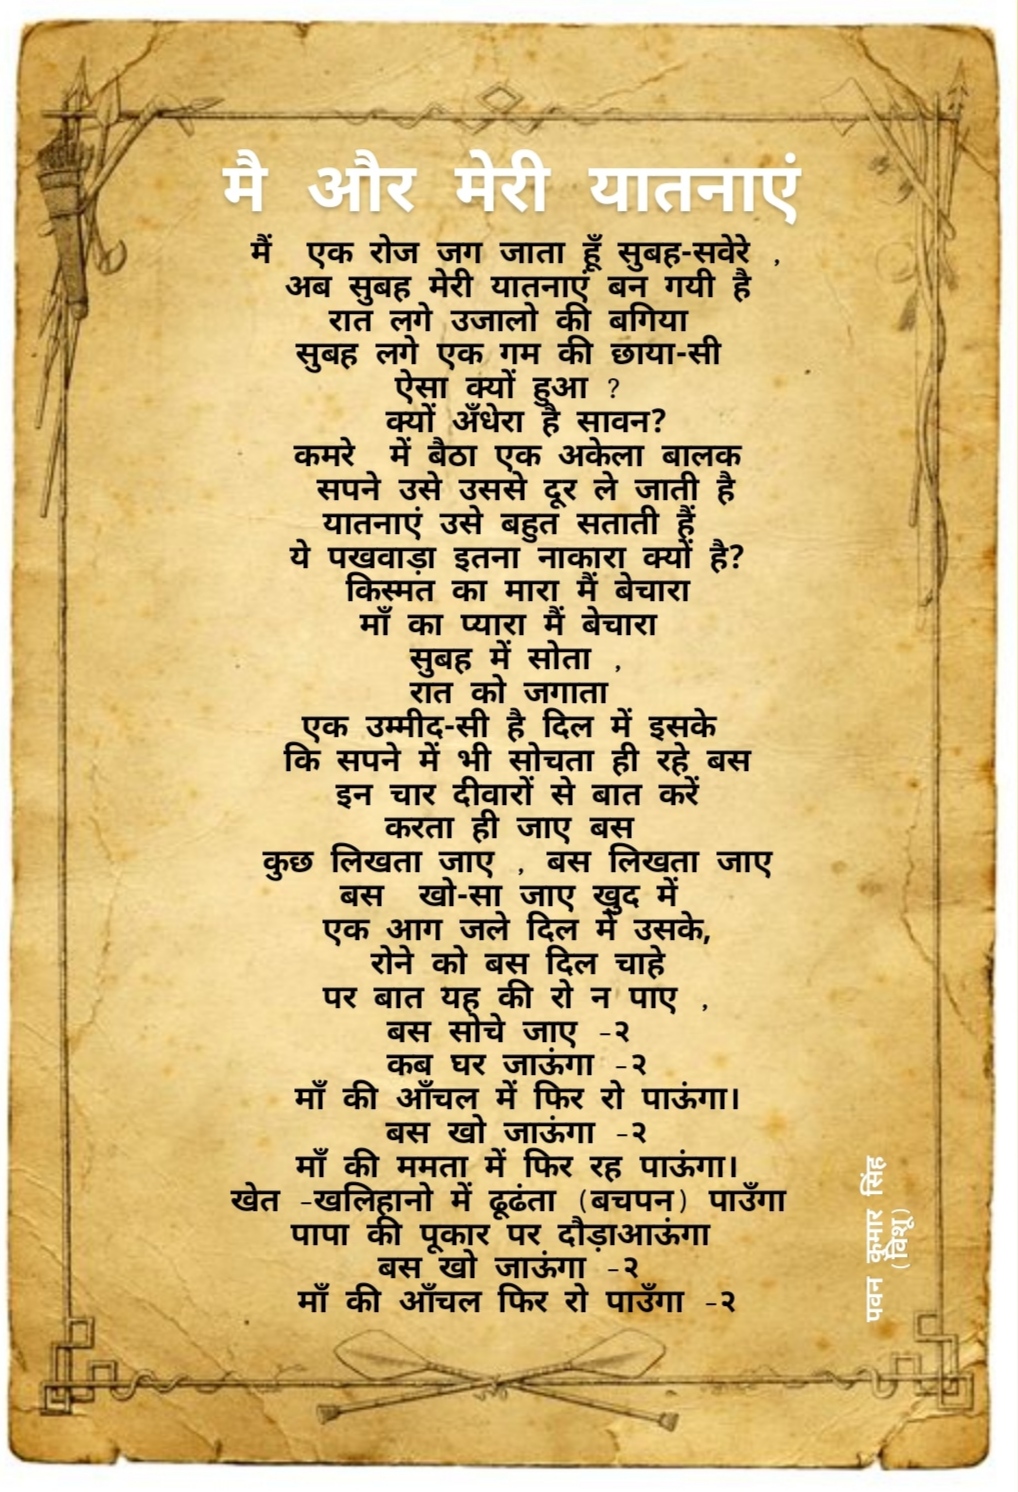 मै और मेरी यातनाएं
मैं एक रोज जग जाता हूँ सुबह-सवेरे ,
अब सुबह मेरी यातनाएं बन गयी है
रात लगे उजालो की बगिया
सुबह लगे एक गम की छाया-सी
ऐसा क्यों हुआ ?
क्यों अँधेरा है सावन?
कमरे में बैठा एक अकेला बालक
सपने उसे उससे दूर ले जाती है
यातनाएं उसे बहुत सताती हैं
ये पखवाड़ा इतना नाकारा क्यों है?
किस्मत का मारा मैं बेचारा
माँ का प्यारा मैं बेचारा
सुबह में सोता ,
रात को जगाता
एक उम्मीद-सी है दिल में इसके
कि सपने में भी सोचता ही रहे बस
इन चार दीवारों से बात करें
करता ही जाए बस
कुछ लिखता जाए , बस लिखता जाए
बस खो-सा जाए खुद में
एक आग जले दिल में उसके,
रोने को बस दिल चाहे
पर बात यह की रो न पाए ,
बस सोचे जाए -२
कब घर जाऊंगा -२
माँ की आँचल में फिर रो पाऊंगा।
बस खो जाऊंगा -२
माँ की ममता में फिर रह पाऊंगा।
खेत -खलिहानो में ढूढंता (बचपन) पाउँगा
पापा की पूकार पर दौड़ाआऊंगा
बस खो जाऊंगा -२
माँ की आँचल फिर रो पाउँगा -२
पवन कुमार सिंह
(विशू)